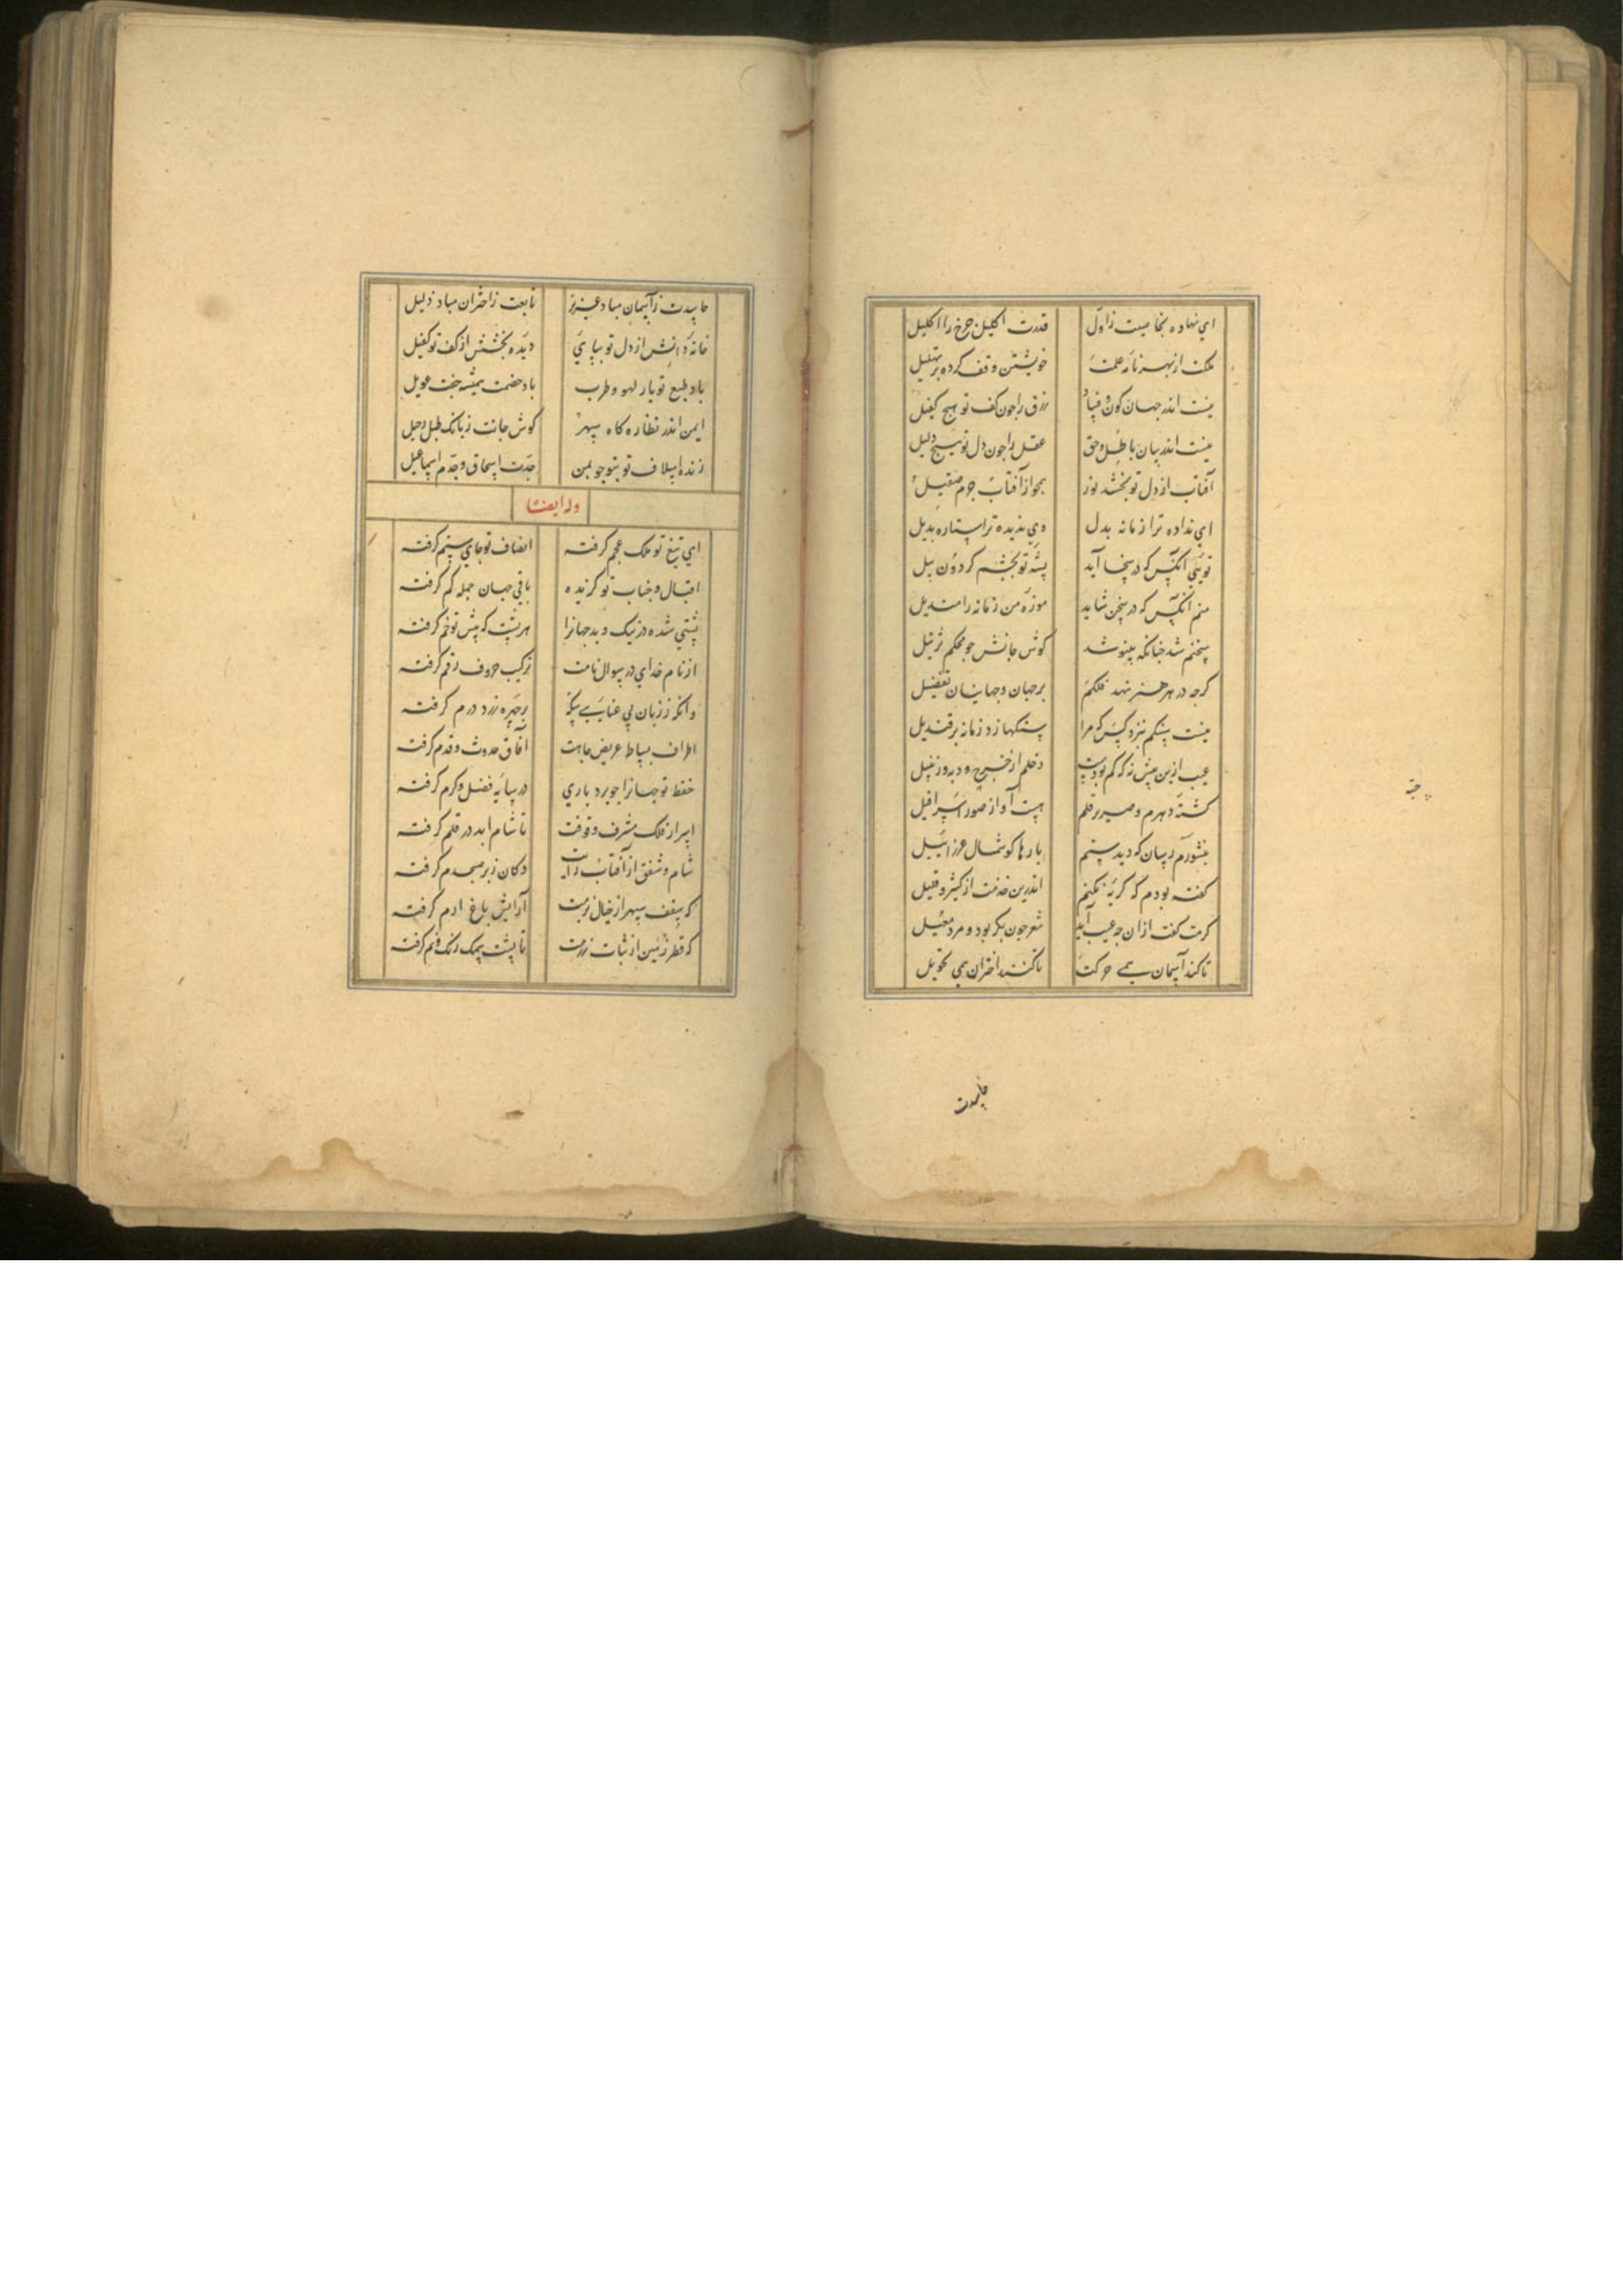 ای نهاده بخاصیت ز اول قدرت اکلیل چرخ را اکلیل
ملکت از بهر نامه عملت خویشتن وقف کرده بر تهلیل
نیست اندر جهان کون و فساد رزق را چون کف تو هیچ کفیل
نیست اندر بیان باطل و حق عقل را چون دل تو هیچ دلیل
آفتاب از دل تو بخشد نور همچو از آفتاب جرم صقیل
ای نداده ترا زمانه بدل وی ندیده ترا ستاره بدیل
تویی آنکس که در سخا آید پشه تو بچشم گردون پیل
منم آنکس که در سخن شاید موزه من زمانه را مندیل
سخنم شد چنانکه بنیوشد گوش جانش چو محکم تنزیل
گرچه در هر هنر نهد فلکم بر جهان و جهانیان تفضیل
نیست سنگم بنزد کس که مرا سنگها زد زمانه بر قندیل
عیب ازین بیش نه که کم بودست دخلم از خرج رود به در و زنبیل
کشته دهرم و صریر قلم هست آواز صور اسرافیل
بنشورم ز سان که دید ستم بارها گوشمال عزرائیل
گفته بودم که گریه نکنم اندرین خدمت از کثیر و قلیل
کرمت گفت ازان چه عیب آید شعر چون بکر بود و مرد معیل
تا کند آسمان همی حرکت تا کنند اختران همی تحویل
حاسدت
حاسدت ز آسمان مباد عزیز تابعت ز اختران مباد ذلیل
خانه دانش از دل تو بپای دیده بخشش از کف تو کفیل
باد طبع تو یار لهو و طرب باد خصمت همیشه جفت عویل
ایمن اندر نظاره گاه سپهر گوش جانت ز بانگ طبل رحیل
زنده اسلاف تو بتو چو بمن جدت اسحاق و جدم اسماعیل
وله ایضا
ای تیغ تو ملک عجم گرفته انصاف تو جای ستم گرفته
اقبال و جناب تو گزیده باقی جهان جمله کم گرفته
پشتی شده در نیک و بد جهانرا هر پشت که پیش تو خم گرفته
از نام خدای در سوال نامت ترکیب حروف رقم گرفته
وانگه ز زبان بی عنایتی سکه بر چهره زرد درم گرفته
اطراف بساط عریض جاهت آفاق حدوث و قدم گرفته
حفظ تو جهانرا چو برد باری در سایه فضل و کرم گرفته
اسرار فلک مشرف وقوفت تا شام ابد در قلم گرفته
شام و شفق از آفتاب رایت دکان ز بر صبحدم گرفته
که سقف سپهر از خیال بزمت آرایش باغ ارم گرفته
که قطر زمین از ثبات رزمت تا پشت سمک رنگ و نم گرفته